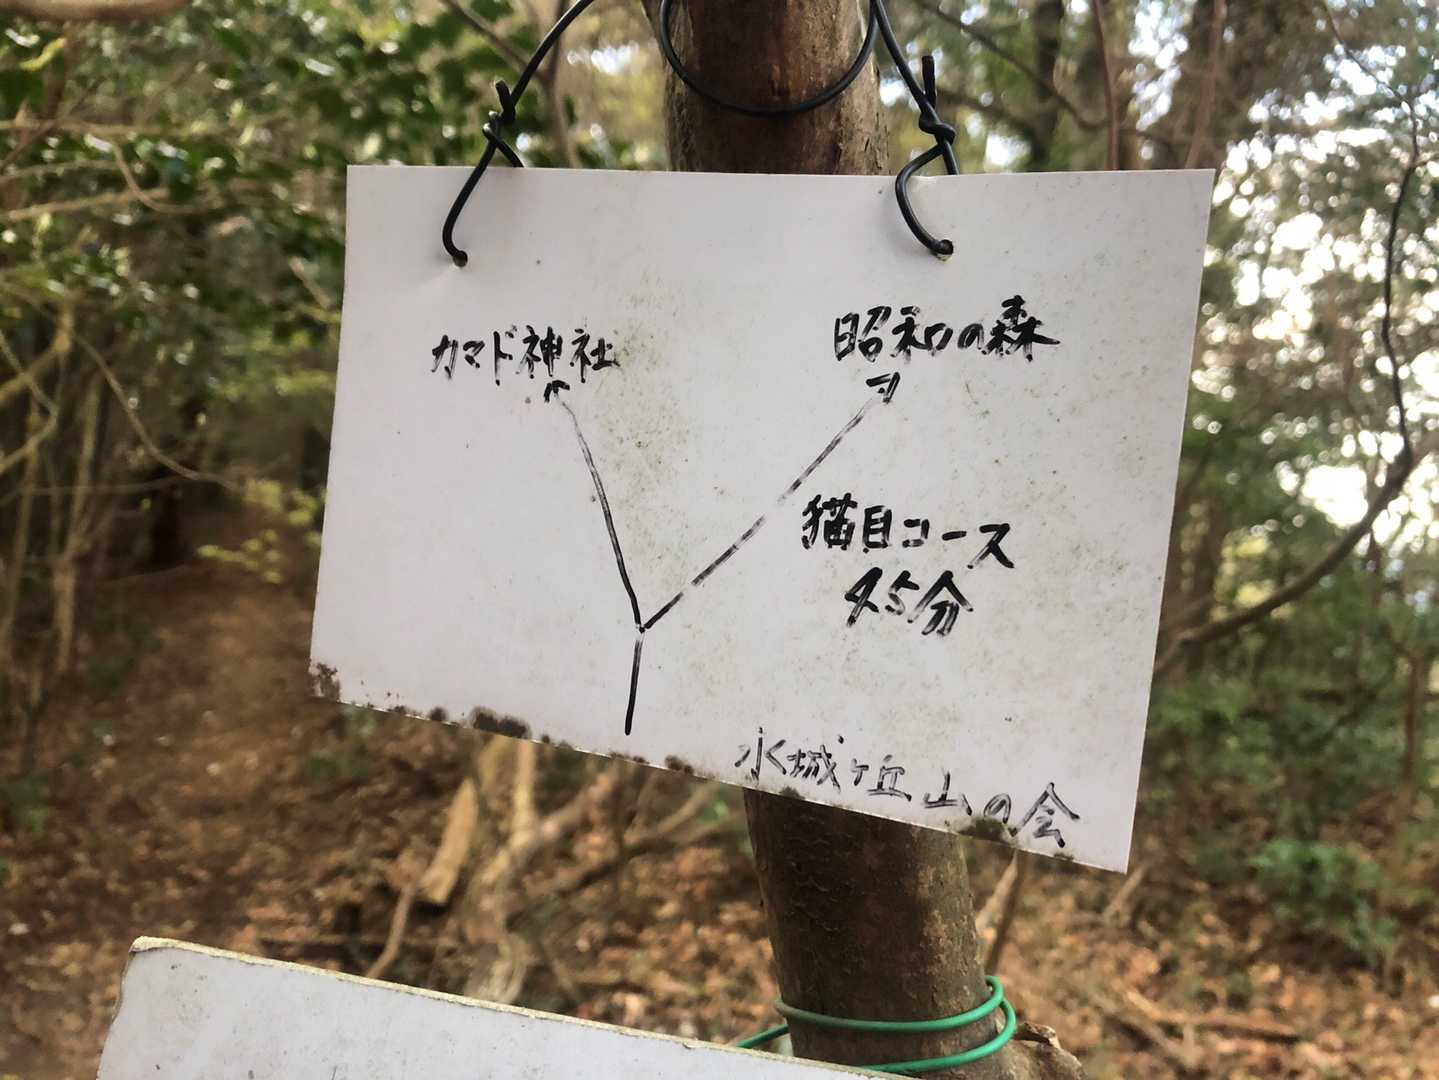 カマド神社
昭和の森
猫目コース
45分
水城ヶ丘山の会